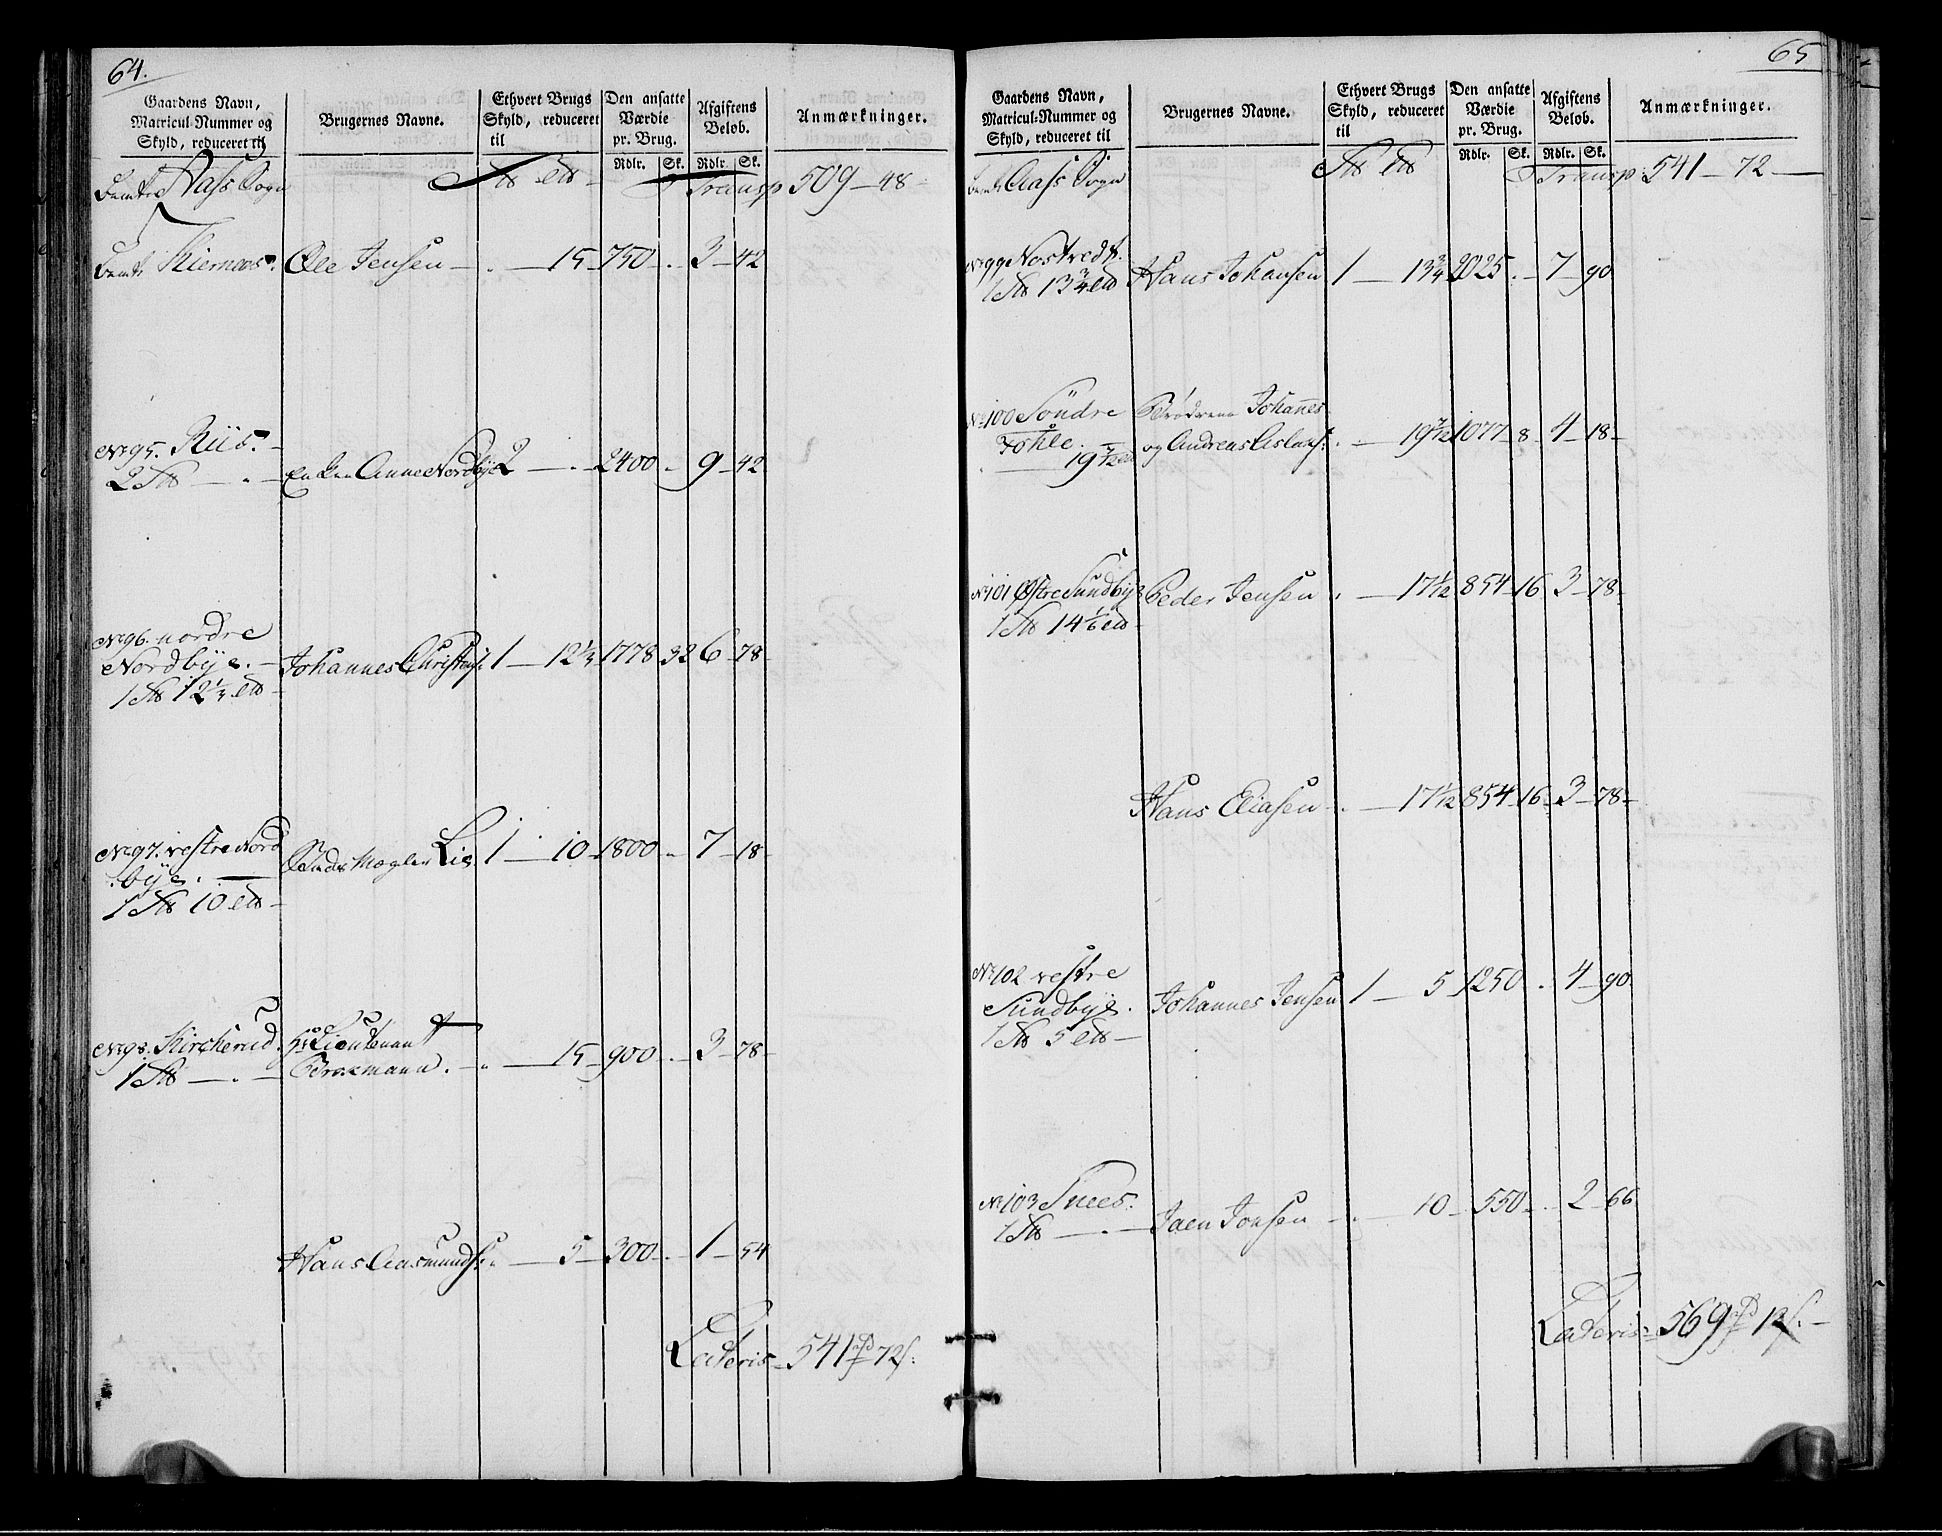 64.
Gaardens Navn, Matricul-Nummer og Skyld, reduceret til
Brugernes Navne.
Ethvert Brugs Skyld, reduceret til
Den ansatte Værdie pr. Brug.
Rdlr. Sk.
Afgiftens Beløb.
Rdlr. Sk.
Anmærkninger.
Aass Sogn
Transp 509 - 48 -
Ole Jensen - . - 15 - 750 - . - 3 - 42
No 95. Riis. -
2 - . - Enken Anne Nordbye 2 - . - 2400 - 9 - 42
No 96. nordre
Nordbye. - Johannes Christens: 1 - 12 1/3 1778 32 6 - 78 -
1 12 1/3
No 97. vestre Nord
bye. - Lie 1 - 10 - 1800 - 7 - 18 -
1 10
No 98. Kircherud. Hr Lieutenant
1 - . - . - 15 - 900 - . - 3 - 78 -
Hans Aasmunds: - 5 - 300 - . - 1 - 54
Lateris - 541 72
65
Gaardens Navn, Matricul-Nummer og Skyld, reduceret til
Brugernes Navne.
Ethvert Brugs Skyld, reduceret til
Den ansatte Værdie pr. Brug.
Rdlr. Sk.
Afgiftens Beløb.
Rdlr. Sk.
Anmærkninger.
Aass Sogn
Transp: 541 - 72 -
No 99 Nostvedt.
1 13 3/4 Hans Johansen 1 - 13 3/4 2025 . - 7 - 90
No 100 Søndre Brødrene Johannes
Fohle. og Andreas Aslaks: . - 19 7/12 1077 - 8 - 4 - 18 -
19 7/12
No 101 Østre Sundbye Peder Jensen . - 17 1/12 854 - 16 3 - 78 -
1 14 1/6
Hans Eliasen - . - 17 1/12 854 - 16 - 3 - 78 -
No 102 vestre
Sundbye. Johannes Jensen 1 - 5 1250 . - 4 - 90
1 5
No 103 Snees.
1 - . - Joen Jonsen - . - 10 - 550 - . 2 - 66
Lateris - 569 12